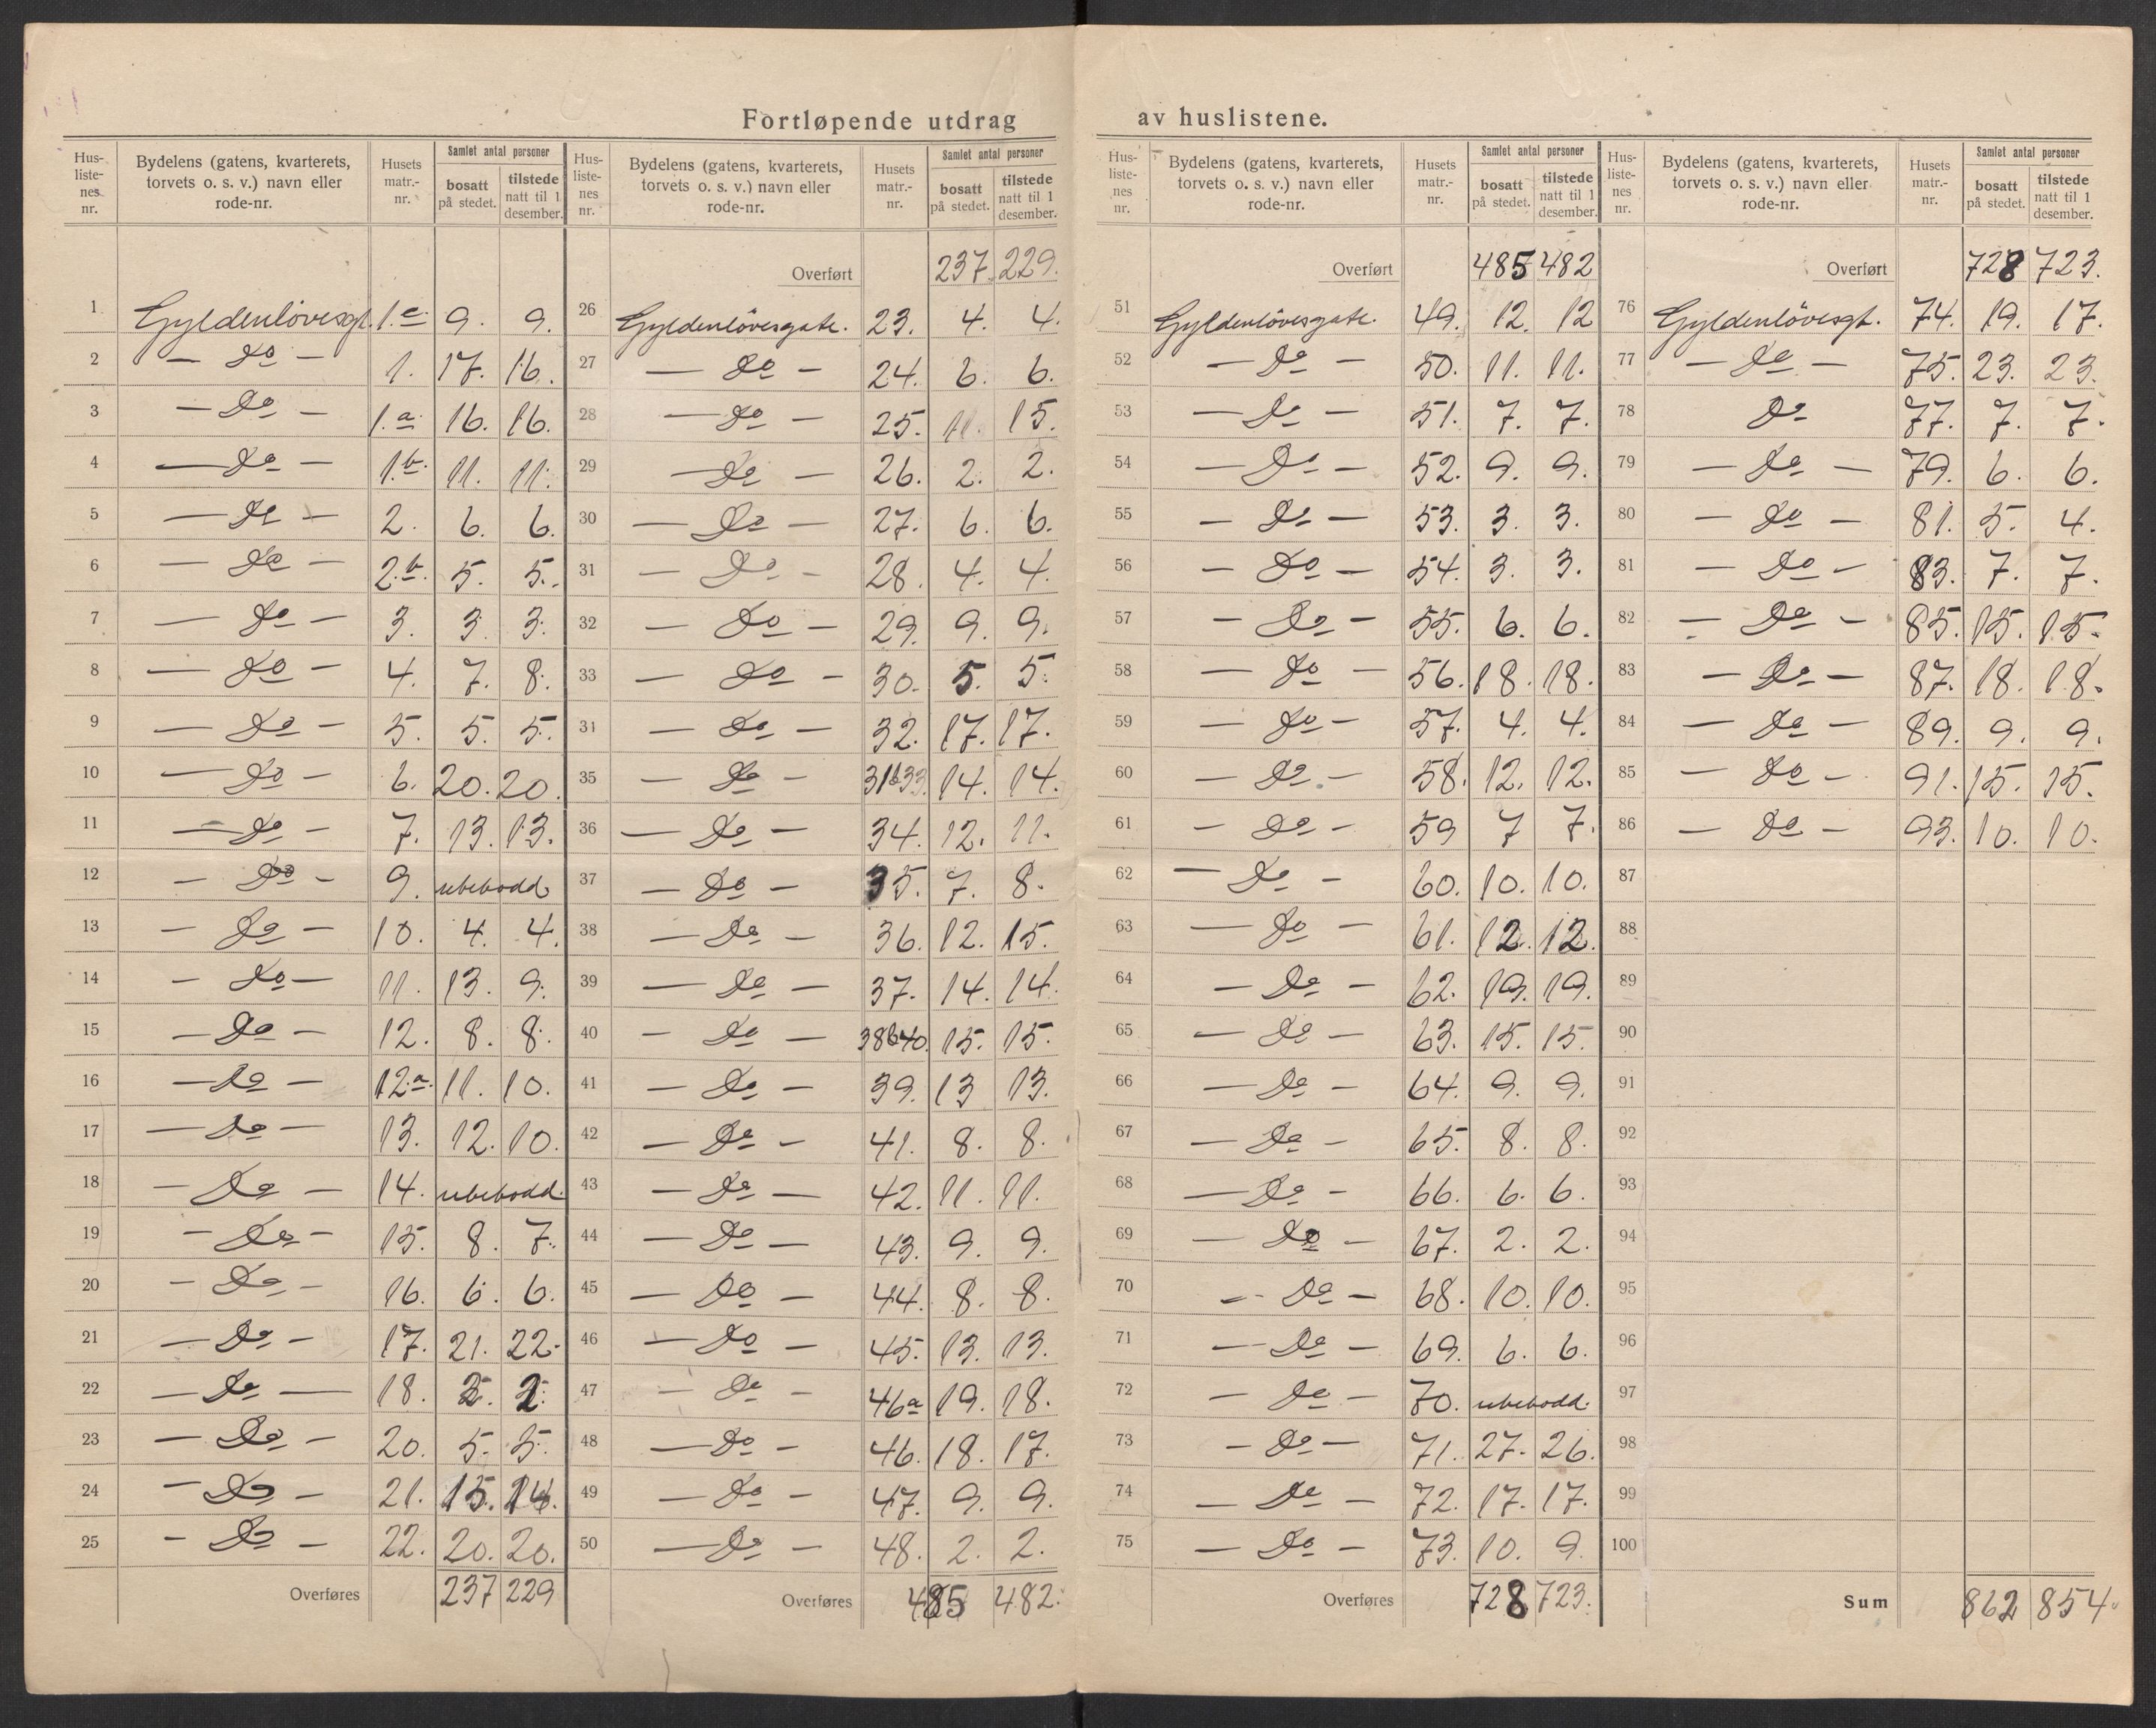 Fortløpende utdrag av huslistene.
Hus-listenes nr. | Bydelens (gatens, kvarterets, torvets o. s. v.) navn eller rode-nr. | Husets matr.-nr. | Samlet antal personer bosatt på stedet. | tilstede natt til 1 desember.
1 Gyldenlövesgt. 1.c. 9. 9.
2 — Do — 1. 17. 16.
3 — Do — 1.a. 16. 16.
4 — Do — 1.b. 11. 11.
5 — Do — 2. 6. 6.
6 — Do — 2.b. 5. 5.
7 — Do — 3. 3. 3.
8 — Do — 4. 7. 8.
9 — Do — 5. 5. 5.
10 — Do — 6. 20. 20.
11 — Do — 7. 13. 13.
12 — Do — 9. ubebodd
13 — Do — 10. 4. 4.
14 — Do — 11. 13. 9.
15 — Do — 12. 8. 8.
16 — Do — 12.a. 11. 10.
17 — Do — 13. 12. 10.
18 — Do — 14. ubebodd.
19 — Do — 15. 8. 7.
20 — Do — 16. 6. 6.
21 — Do — 17. 21. 22.
22 — Do — 18. 2. 2.
23 — Do — 20. 5. 5.
24 — Do — 21. 15. 14.
25 — Do — 22. 20. 20.
Overføres 237 229
Hus-listenes nr. | Bydelens (gatens, kvarterets, torvets o. s. v.) navn eller rode-nr. | Husets matr.-nr. | Samlet antal personer bosatt på stedet. | tilstede natt til 1 desember.
Overført 237. 229.
26 Gyldenlövesgate. 23. 4. 4.
27 — Do — 24. 6. 6.
28 — Do — 25. 11. 15.
29 — Do — 26. 2. 2.
30 — Do — 27. 6. 6.
31 — Do — 28. 4. 4.
32 — Do — 29. 9. 9.
33 — Do — 30. 5. 5.
34 — Do — 32. 17. 17.
35 — Do — 31b33. 14. 14.
36 — Do — 34. 12. 11.
37 — Do — 35. 7. 8.
38 — Do — 36. 12. 15.
39 — Do — 37. 14. 14.
40 — Do — 38b40. 15. 15.
41 — Do — 39. 13 13.
42 — Do — 41. 8. 8.
43 — Do — 42. 11. 11.
44 — Do — 43. 9. 9.
45 — Do — 44. 8. 8.
46 — Do — 45. 13. 13.
47 — Do — 46a 19. 18.
48 — Do — 46. 18. 17.
49 — Do — 47. 9. 9.
50 — Do — 48. 2. 2.
Overføres 485 482.
Hus-listenes nr. | Bydelens (gatens, kvarterets, torvets o. s. v.) navn eller rode-nr. | Husets matr.-nr. | Samlet antal personer bosatt på stedet. | tilstede natt til 1 desember.
Overført 485 482
51 Gyldenlövesgate. 49. 12. 12
52 — Do — 50. 11. 11.
53 — Do — 51. 7. 7.
54 — Do — 52. 9. 9.
55 — Do — 53. 3. 3.
56 — Do — 54. 3. 3.
57 — Do — 55. 6. 6.
58 — Do — 56. 18. 18.
59 — Do — 57. 4. 4.
60 — Do — 58. 12. 12.
61 — Do — 59 7 7.
62 — Do — 60. 10. 10.
63 — Do — 61. 12. 12.
64 — Do — 62. 19. 19.
65 — Do — 63. 15. 15.
66 — Do — 64. 9. 9.
67 — Do — 65. 8. 8.
68 — Do — 66. 6. 6.
69 — Do — 67. 2. 2.
70 — Do — 68. 10. 10.
71 — Do — 69. 6. 6.
72 — Do — 70. ubebodd.
73 — Do — 71. 27. 26.
74 — Do — 72. 17. 17.
75 — Do — 73. 10. 9.
Overføres 728 723.
Hus-listenes nr. | Bydelens (gatens, kvarterets, torvets o. s. v.) navn eller rode-nr. | Husets matr.-nr. | Samlet antal personer bosatt på stedet. | tilstede natt til 1 desember.
Overført 728 723.
76 Gyldenlövesgt. 74. 19. 17.
77 — Do — 75. 23. 23.
78 Do 77. 7. 7.
79 — Do — 79. 6. 6.
80 — Do — 81. 5. 4.
81 — Do — 83. 7. 7.
82 — Do — 85. 15. 15.
83 — Do — 87. 18. 18.
84 — Do — 89. 9. 9.
85 — Do — 91. 15. 15.
86 — Do — 93. 10. 10.
87
88
89
90
91
92
93
94
95
96
97
98
99
100
Sum 862 854.